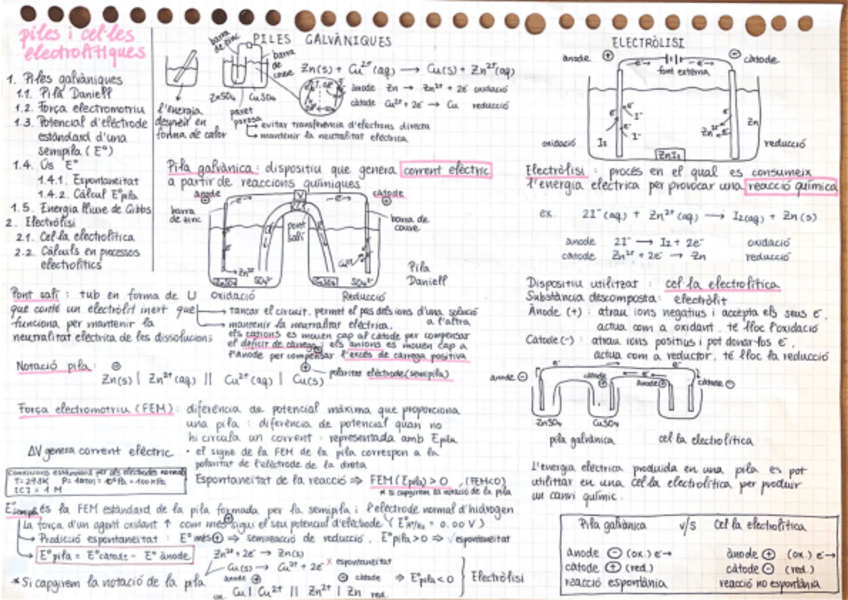 piles i cel·les
electrolítiques
1. Piles galvàniques
1.1. Pila Daniell
1.2. Força electromotriu
1.3. Potencial d'elèctrode
estàndard d'una
semipila (E°)
1.4. Ús E°
1.4.1. Espontaneïtat
1.4.2. Càlcul E°pila
1.5. Energia lliure de Gibbs
2. Electròlisi
2.1. Cel·la electrolítica
2.2. Càlculs en processos
electrolítics
PILES GALVÀNIQUES
barra
de zinc
barra
de coure
ZnSO₄ CuSO₄
paret
porosa
l'energia
desprèn en
forma de calor
Zn(s) + Cu²⁺(aq) → Cu(s) + Zn²⁺(aq)
ànode Zn → Zn²⁺ + 2e⁻ oxidació
càtode Cu²⁺ + 2e⁻ → Cu reducció
→ evitar transferència d'electrons directa
→ mantenir la neutralitat elèctrica
Pila galvànica: dispositiu que genera corrent elèctric
a partir de reaccions químiques
ànode ⊖
càtode ⊕
barra
de zinc
pont
salí
barra de
coure
V
e⁻→
Zn²⁺ SO₄²⁻
Cu²⁺ SO₄²⁻
ZnSO₄ CuSO₄
Pila
Daniell
Oxidació Reducció
Pont salí: tub en forma de U
que conté un electròlit inert que
funciona per mantenir la
neutralitat elèctrica de les dissolucions
→ tancar el circuit, permet el pas dels ions d'una solució
a l'altra
→ mantenir la neutralitat elèctrica.
els cations es mouen cap al càtode per compensar
el dèficit de càrrega, els anions es mouen cap a
l'ànode per compensar l'excés de càrrega positiva
Notació pila: ⊖ ⊕ → polaritat elèctrode (semipila)
Zn(s) | Zn²⁺(aq) || Cu²⁺(aq) | Cu(s)
Força electromotriu (FEM): diferència de potencial màxima que proporciona
una pila: diferència de potencial quan no
hi circula un corrent: representada amb Epila
ΔV genera corrent elèctric
• el signe de la FEM de la pila correspon a la
polaritat de l'elèctrode de la dreta
T = 298K
[C] = 1 M
Espontaneïtat de la reacció ⇒ FEM (Epila) > 0 (FEM<0)
* si capgirem la notació de la pila
E°semipila és la FEM estàndard de la pila formada per la semipila i l'elèctrode normal d'hidrogen
la força d'un agent oxidant ↑ com més ⊕ sigui el seu potencial d'elèctrode (E°H⁺/H₂ = 0.00 V)
→ Predicció espontaneïtat: E° més ⊕ ⇒ semireacció de reducció, E°pila > 0 ⇒ ✓ espontaneïtat
→ E°pila = E°càtode - E°ànode
Zn²⁺ + 2e⁻ → Zn(s)
Cu(s) → Cu²⁺ + 2e⁻ x espontaneïtat
* Si capgirem la notació de la pila
ànode ⊕ ⊖ càtode ⇒ E°pila < 0
ox. Cu | Cu²⁺ || Zn²⁺ | Zn red.
Electròlisi
ELECTRÒLISI
ànode ⊕
⊖ càtode
e⁻→
font externa
oxidació
I₂ I⁻
Zn²⁺
Zn
ZnI₂
reducció
Electròlisi: procés en el qual es consumeix
l'energia elèctrica per provocar una reacció química
ex. 2I⁻(aq) + Zn²⁺(aq) → I₂(aq) + Zn(s)
ànode 2I⁻ → I₂ + 2e⁻ oxidació
càtode Zn²⁺ + 2e⁻ → Zn reducció
Dispositiu utilitzat: cel·la electrolítica
Substància descomposta: electròlit
Ànode (+): atrau ions negatius i accepta els seus e⁻,
actua com a oxidant, té lloc l'oxidació
Càtode (-): atrau ions positius i pot donar-los e⁻,
actua com a reductor, té lloc la reducció
ànode ⊖
càtode ⊕
ànode ⊕
càtode ⊖
ZnSO₄ CuSO₄
pila galvànica cel·la electrolítica
L'energia elèctrica produïda en una pila es pot
utilitzar en una cel·la electrolítica per produir
un canvi químic.
Pila galvànica v/s Cel·la electrolítica
ànode ⊖ (ox.) e⁻→ ànode ⊕ (ox.) e⁻→
càtode ⊕ (red.) càtode ⊖ (red.)
reacció espontània reacció no espontània